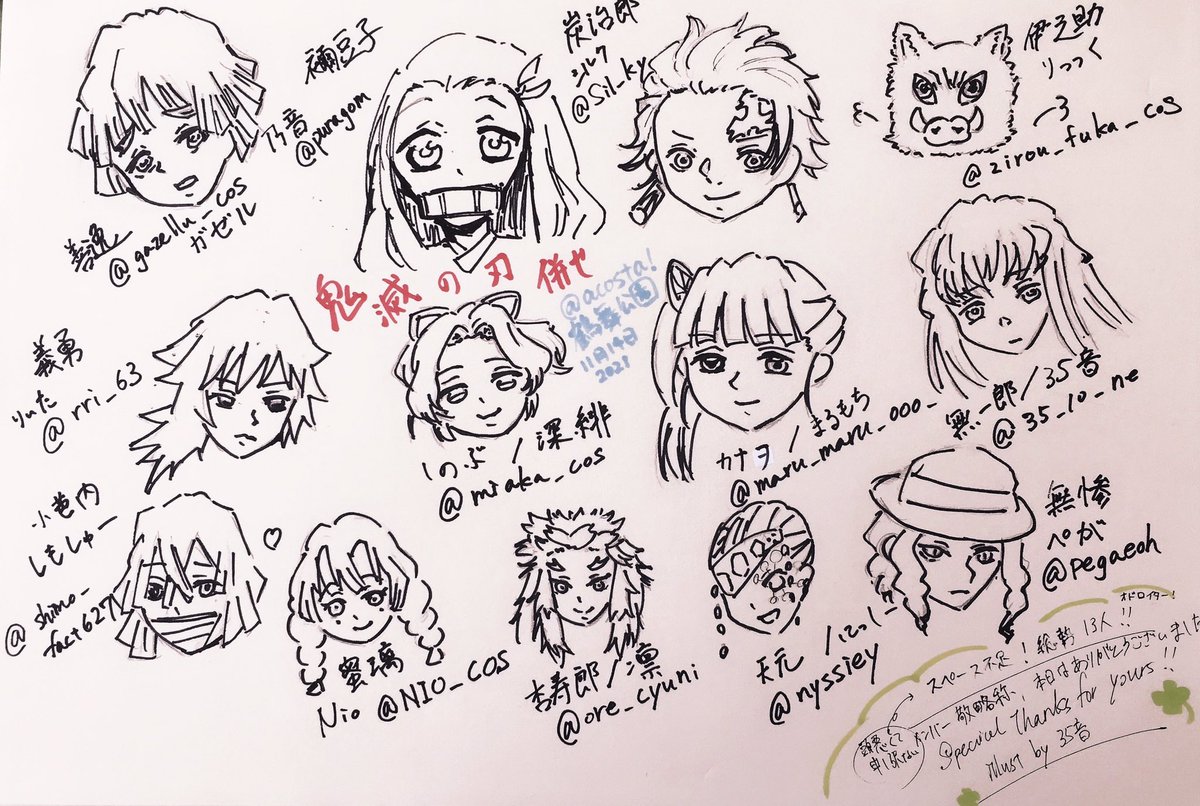 善逸
@gazellu_cos
ガゼル
禰豆子
乃音
@puragom
炭治郎
シルク
@Sil_ky
伊之助
りっつく
@zirou_fuka_cos
鬼滅の刃 併せ
@acosta!
鶴舞公園
11月14日
2021
義勇
りいた
@rri_63
しのぶ/深緋
@miaka_cos
カナヲ/まるもち
@maru_maru_000_
無一郎/35音
@35_10_ne
小芭内
しもしゅー
@shimo_
fact627
♡
蜜璃
Nio @NIO_cos
杏寿郎/凛
@ore_cyuni
天元/にっしー
@nyssiey
無惨
ぺが
@pegaeoh
スペース不足! 総勢13人!!
メンバー敬略称、本日はありがとうございました!!
Specical Thanks for yours
illust by 35音